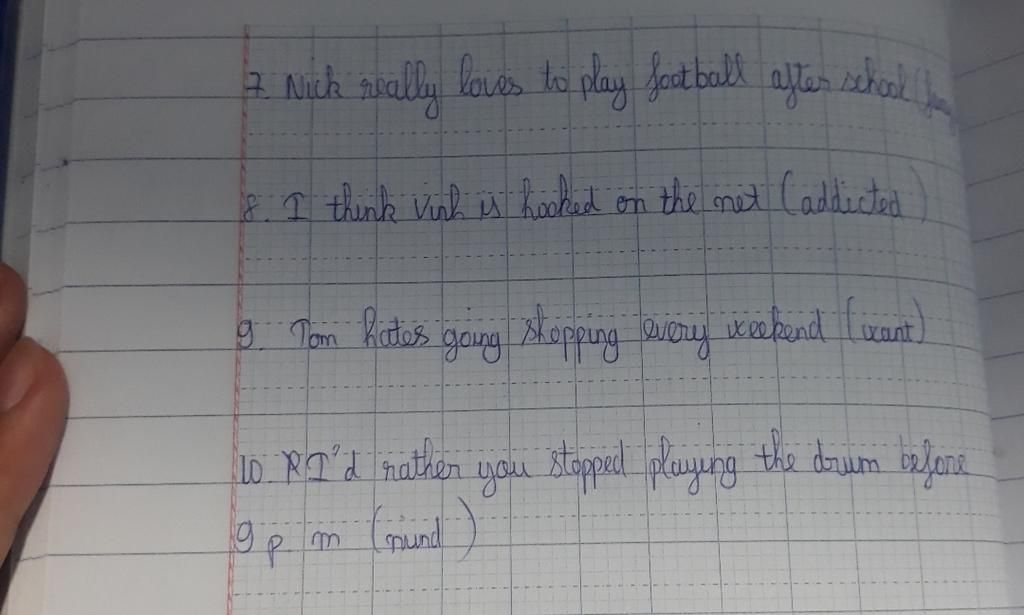 7. Nick really loves to play football after school (
8. I think Vinh is hooked on the net (addicted)
9. Tom hates going shopping every weekend (want)
10. I'd rather you stopped playing the drum before
9 p m (mind)